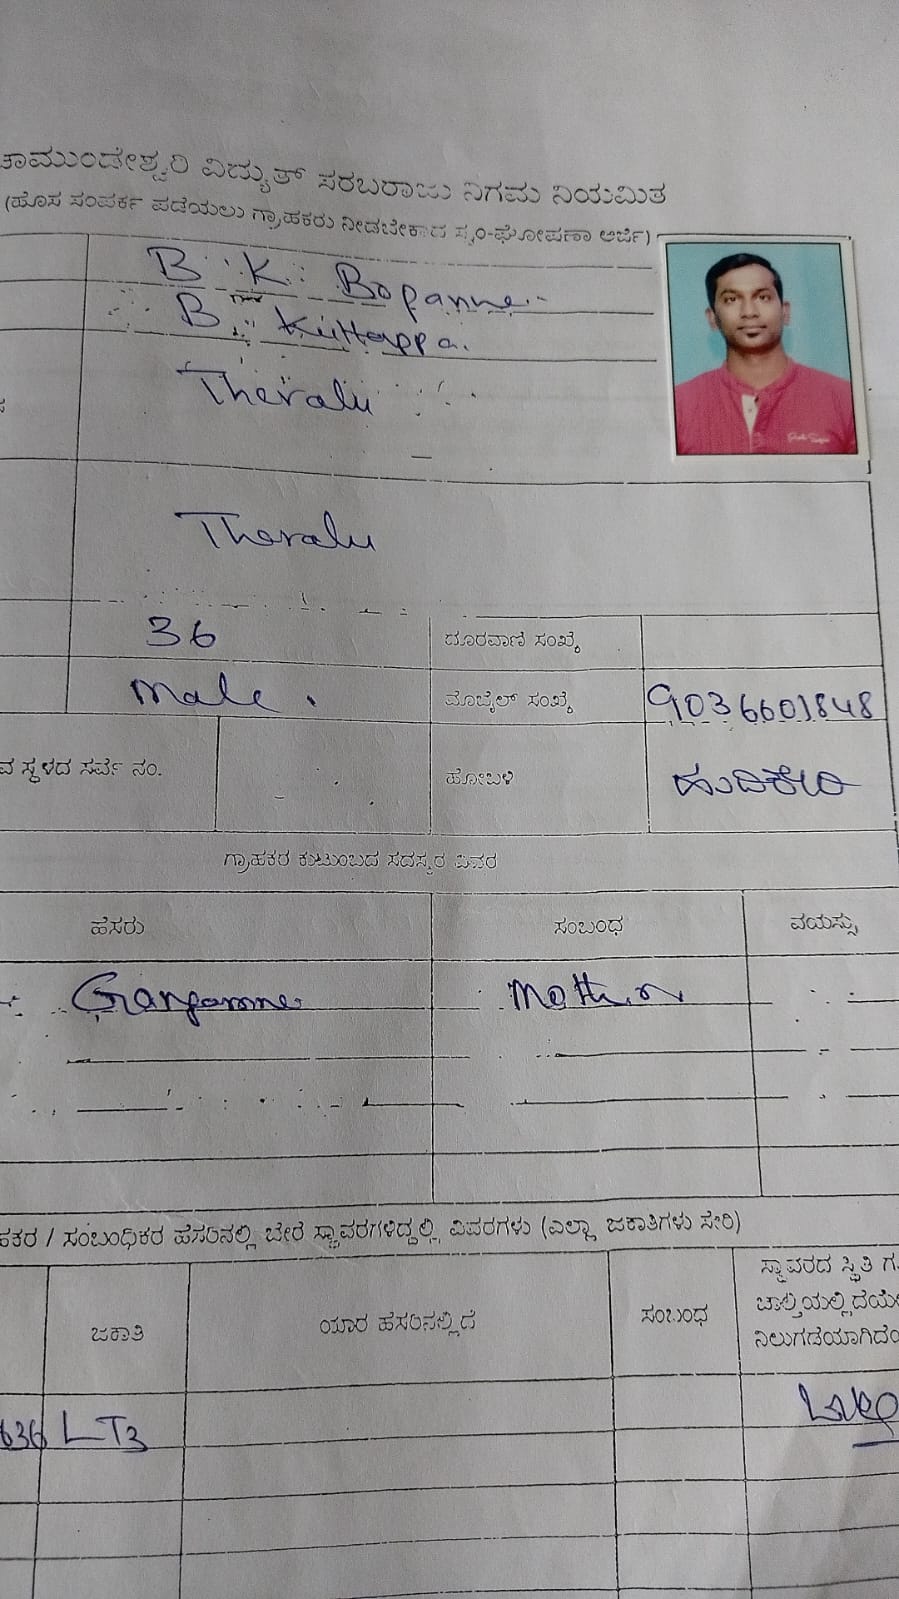 ಚಾಮುಂಡೇಶ್ವರಿ ವಿದ್ಯುತ್ ಸರಬರಾಜು ನಿಗಮ ನಿಯಮಿತ
(ಹೊಸ ಸಂಪರ್ಕ ಪಡೆಯಲು ಗ್ರಾಹಕರು ನೀಡಬೇಕಾದ ಸ್ವಂ-ಘೋಷಣಾ ಅರ್ಜಿ)
B. K. Bopanna
B. Kuttappa.
Theralu
Theralu
36 ದೂರವಾಣಿ ಸಂಖ್ಯೆ
male. ಮೊಬೈಲ್ ಸಂಖ್ಯೆ 9036601848
ವ ಸ್ಥಳದ ಸರ್ವೆ ನಂ. ಹೋಬಳಿ ಹುದಿಕೇರಿ
ಗ್ರಾಹಕರ ಕುಟುಂಬದ ಸದಸ್ಯರ ವಿವರ
ಹೆಸರು ಸಂಬಂಧ ವಯಸ್ಸು
Mother
ಹಕರ / ಸಂಬಂಧಿಕರ ಹೆಸರಿನಲ್ಲಿ ಬೇರೆ ಸ್ಥಾವರಗಳಿದ್ದಲ್ಲಿ ವಿವರಗಳು (ಎಲ್ಲಾ ಜಕಾತಿಗಳು ಸೇರಿ)
ಜಕಾತಿ ಯಾರ ಹೆಸರಿನಲ್ಲಿದೆ ಸಂಬಂಧ ಸ್ಥಾವರದ ಸ್ಥಿತಿ
ಚಾಲ್ತಿಯಲ್ಲಿದೆಯೇ
ನಿಲುಗಡೆಯಾಗಿದೆಂ
636 LT3